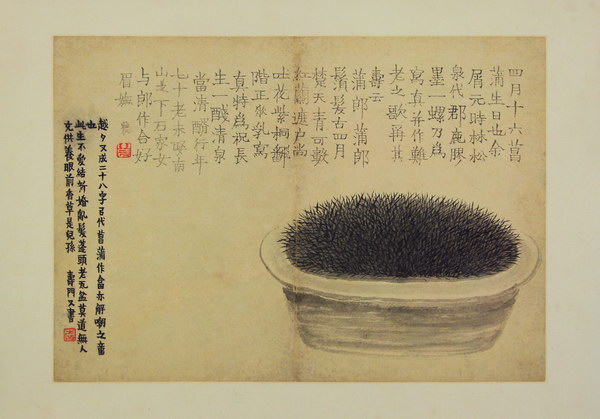 四月十六菖
蒲生日也余
屑元時林松
泉代郡鹿膠
墨一螺乃為
寫真并作難
老之歌稱其
壽云
蒲郎蒲郎
鬚髮古四月
楚天青可數
紅蘭遮戶尚
吐花紫桐
階正乳寫
真特為祝長
生一醆清泉
當清醑行年
七十老未娶南
山之下石家女
与郎作合好
眉嫵
越夕又成二十八字召代菖蒲作畣亦解嘲之意
也
此生不愛結新婚亂髮蓬頭老瓦盆莫道無人
充供養眼前香草是兒孫 壽門又書